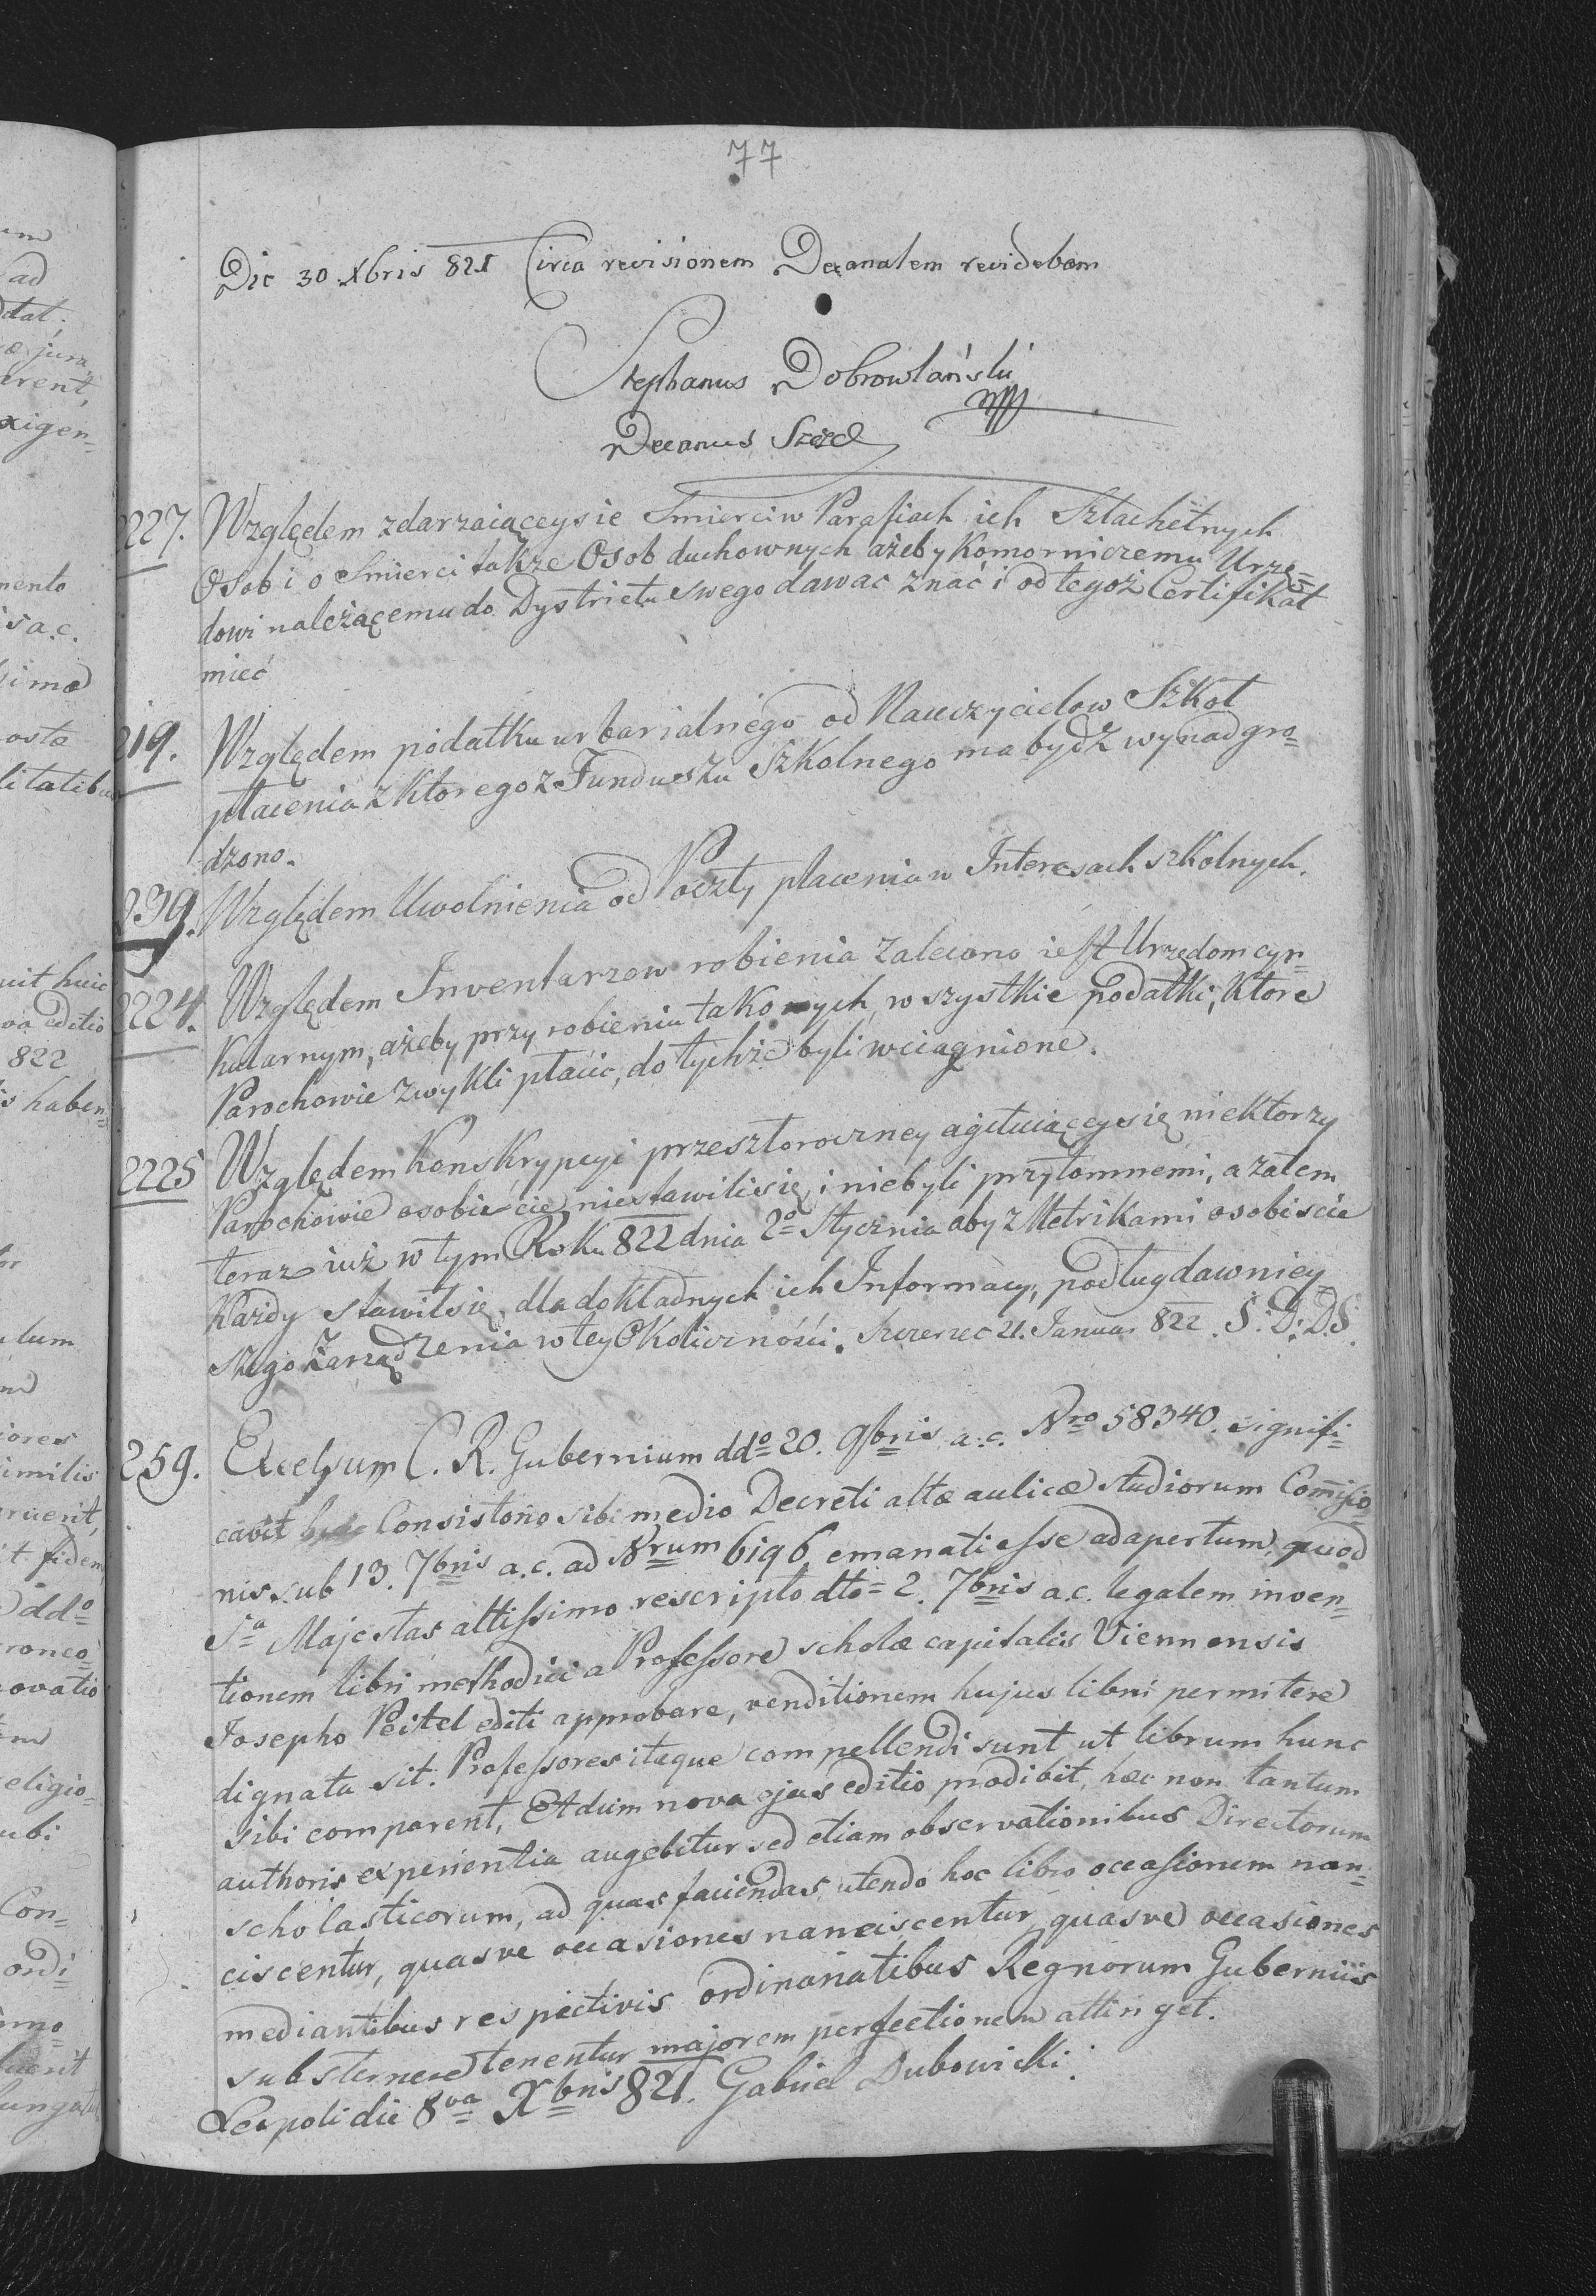 77
Die 30 Xbris 821 Circa revisionem Decanalem revidebam
Stephanus Dobrowlański
Decanus Szczec
2227. Względem zdarzaiąceysie Smierci w Parafiach ich Szlachetnych
Osob i o Smierci takze Osob duchownych ażeby Komorniczemu Urzę=
dowi należącemu do Dystrictu swego dawac znać i od tegoż Certifikat
mieć
219. Względem podatku urbarialnego od Nauczycielow Szkoł
płacenia z ktorego z Funduszu Szkolnego ma bydź wynadgro=
dzono.
239. Względem Uwolnienia od Poczty płacenia w Interesach szkolnych.
2224. Względem Inventarzow robienia zalecono iest Urzędom cyr=
kularnym, ażeby przy robieniu takowych, wszystkie podatki, ktore
Parochowie zwykli płacic, do tychże byli wciągnione.
2225 Względem Konskrypcyi przeszłoroczney agituiąceysię niektorzy
Parochowie osobiscie niestawilisię, i niebyli przytomnemi, a zatem
teraz iuż w tym Roku 822 dnia 2o= Stycznia aby z Metrikami osobiscie
Kazdy stawiłsię dla dokładnych ich Informacy, podług dawniey
szego Zarządzenia w tey Okoliczności. Szczerzec 21. Januar 822. S: D: D.S.
259. Excelsum C. R. Gubernium ddo= 20. 9bris a.c. Nro 58340. signifi=
cavit Consistorio sibi medio Decreti altæ aulicæ studiorum Com̄isio
nis sub 13. 7bris a.c. ad Nrum 6196 emanati esse adapertum, quod
Sa Majestas altissimo rescripto dto= 2. 7bris a.c. legalem inven=
tionem libri methodici a Professore scholæ capitalis Viennensis
Josepho Peitel editi approbare, venditionem hujus libri permitere
dignata sit. Professores itaque compellendi sunt ut librum hunc
sibi comparent, Et dum nova ejus editio prodibit, hæc non tantum
authoris experientia augebitur sed etiam observationibus Directorum
scholasticorum, ad quas faciendas utendo hoc libro occasionem nan=
ciscentur, quasve occasiones nanciscentur quasve occasiones
mediantibus respectivis ordinariatibus Regnorum Guberniis
substernere tenentur majorem perfectionem attinget.
Leopoli die 8va Xbris 821. Gabriel Dubowicki